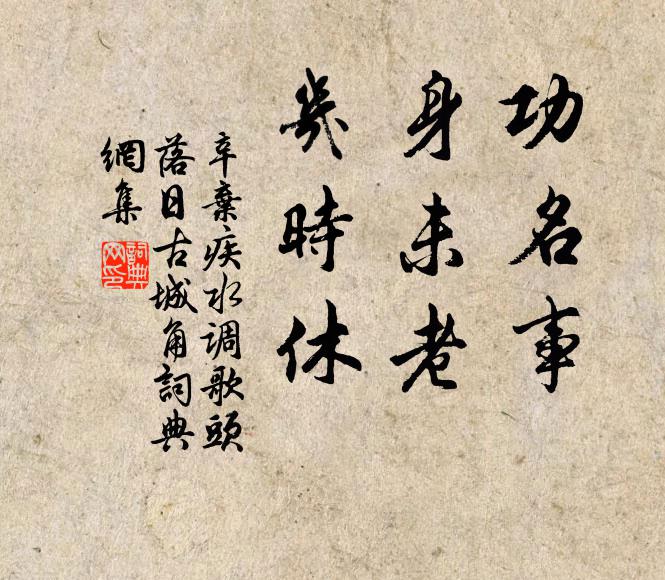 功名事
身未老
幾時休
辛棄疾水调歌頭
落日古城角詞典
網集
詞典网印